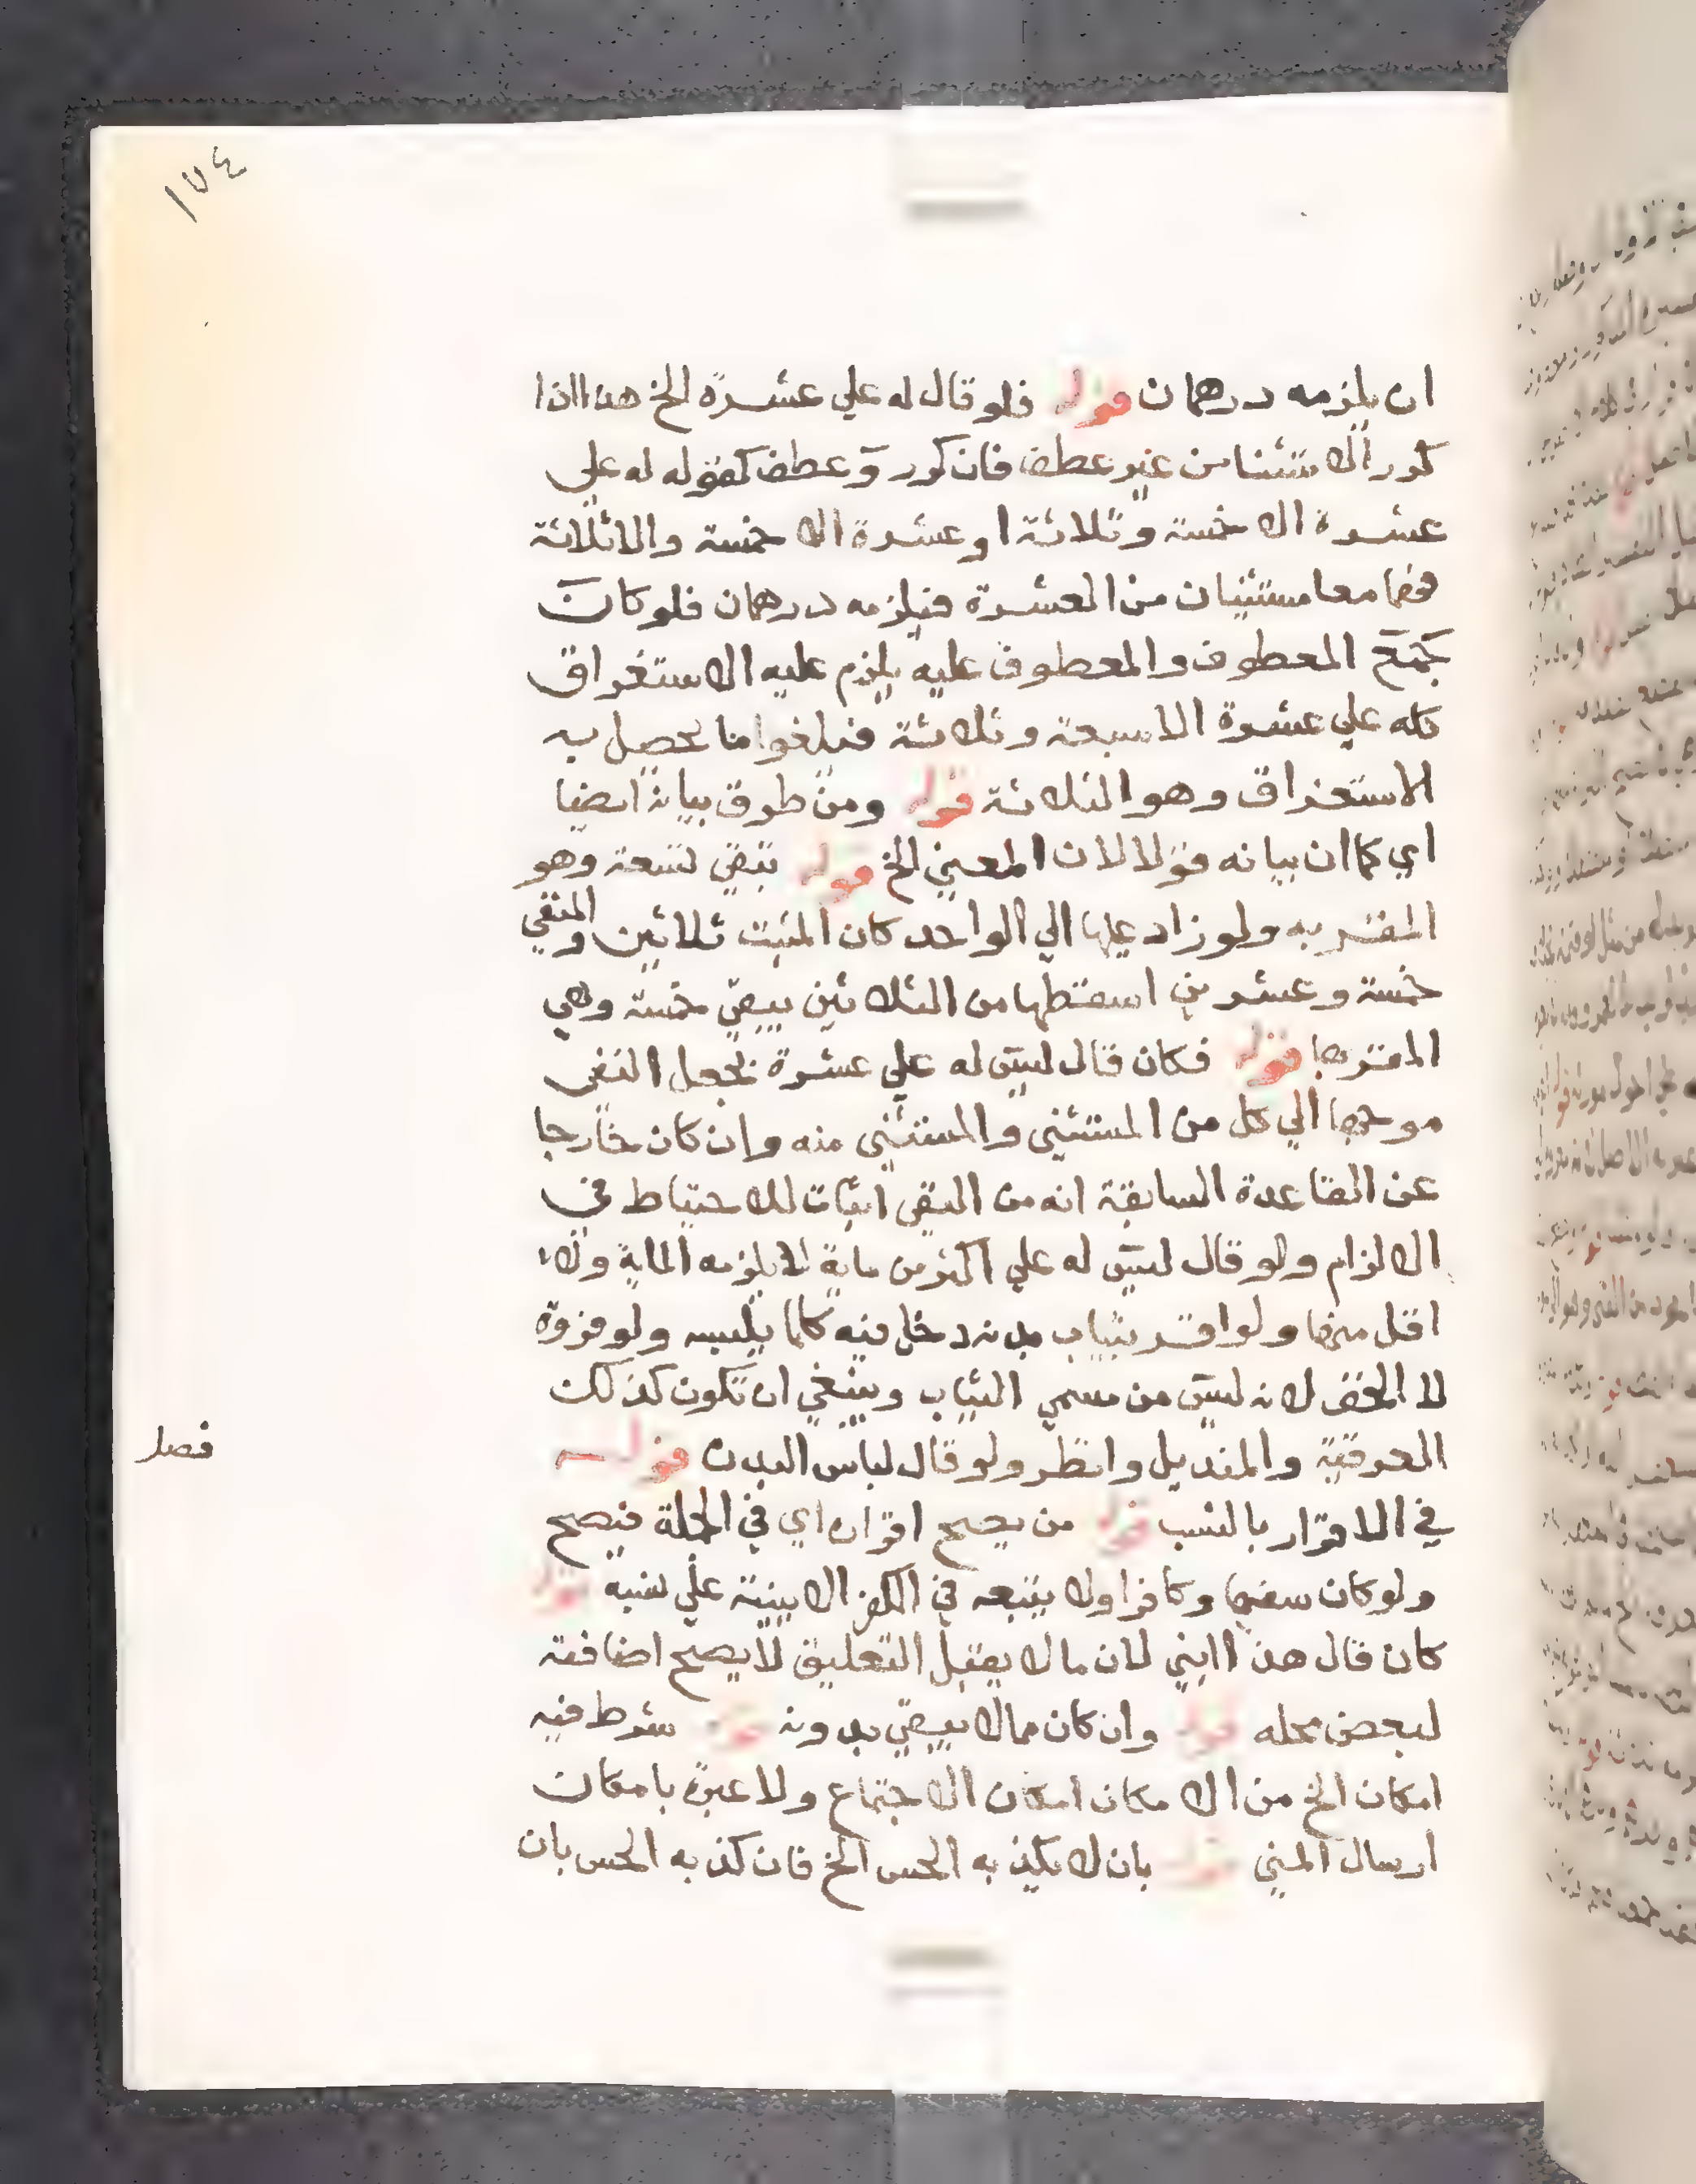 ١٧٤
ان يلزمه درهمان قوله فلو قال له علي عشرة الخ هذا اذا
كرر الاستثنا من غير عطف فان كرر وعطف كقوله له علي
عشرة الا خمسة وثلاثة او عشرة الا خمسة والا ثلاثة
فهما معا مستثنيان من العشرة فيلزمه درهمان فلو كان
جمع المعطوف والمعطوف عليه يلزم عليه الاستغراق
كله علي عشرة الا سبعة وثلاثة فيلغوا ما يحصل به
الاستغراق وهو الثلاثة قوله ومن طرق بيانه ايضا
اي كما ان بيانه قولا لان المعني الخ قوله تبقي تسعة وهو
المقر به ولو زاد عليها الي الواحد كان المثبت ثلاثين والمنفي
خمسة وعشرين اسقطها من الثلاثين يبقي خمسة وهي
المقر بها قوله فكان قال ليس له علي عشرة بجعل النفي
موجها الي كل من المستثني والمستثني منه وان كان خارجا
عن القاعدة السابقة انه من النفي اثبات للاحتياط في
الالزام ولو قال ليس له علي اكثر من ماية لا يلزمه الماية ولا
اقل منها ولو اقر بثياب بدنه دخل فيه كلما يلبسه ولو فروة
لا الخف لانه ليس من مسمي الثياب وينبغي ان تكون كذلك
العرقية والمنديل وانظر ولو قال لباس البدن قوله
فصل
في الاقرار بالنسب قوله من يصح اقراره اي في الجملة فيصح
ولو كان سفيها وكافرا ولا يتبعه في الكفر الا ببينة علي نسبه قوله
كان قال هذا ابني لان ما لا يقبل التعليق لا يصح اضافته
لبعض محله قوله وان كان مما لا يبقي بدونه قوله شرط فيه
امكان الخ من الامكان امكان الاجتماع ولا عبرة بامكان
ارسال المني قوله بان لا يكذبه الحس الخ فان كذبه الحس بان